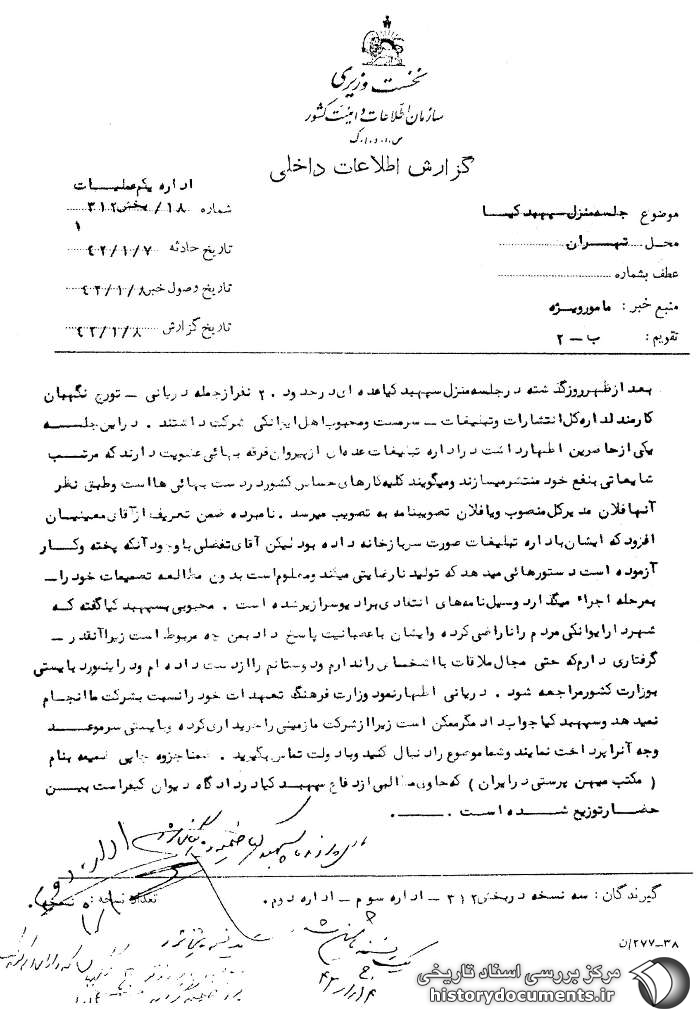 نخست وزیری
سازمان اطلاعات و امنیت کشور
س.ا.و.ا.ک
گزارش اطلاعات داخلی
اداره یکم عملیات
شماره ۱۸/ بخش ۳۱۲
۱
تاریخ حادثه ۴۲/۱/۷
تاریخ وصول خبر ۴۲/۱/۸
تاریخ گزارش ۴۲/۱/۸
موضوع جلسه منزل سپهبد کیا
محل تهران
عطف بشماره
منبع خبر : مامور ویژه
تقویم : ب - ۲
بعد از ظهر روز گذشته در جلسه منزل سپهبد کیا عده ای در حدود ۲۰ نفر از جمله دریانی - تورج نگهبان
کارمند اداره کل انتشارات و تبلیغات - سرمست و محبوب اهل ایوانکی شرکت داشتند . در این جلسه
یکی از حاضرین اظهار داشت در اداره تبلیغات عده ای از پیروان فرقه بهائی عضویت دارند که مرتب
شایعاتی بنفع خود منتشر میسازند و میگویند کلیه کارهای حساس کشور در دست بهائی ها است و طبق نظر
آنها فلان مدیر کل منصوب و یا فلان تصویبنامه به تصویب میرسد . نامبرده ضمن تعریف از آقای معینیان
افزود که ایشان باداره تبلیغات صورت سربازخانه داده بود لیکن آقای تفضلی با وجود آنکه پخته و کار
آزموده است دستورهائی میدهد که تولید نارضایتی میکند و معلوم است بدون مطالعه تصمیمات خود را -
بمرحله اجراء میگذارد و سیل نامه های انتقادی برادیو سرازیر شده است . محبوبی بسپهبد کیا گفته که
شهردار ایوانکی مردم را ناراضی کرده و ایشان با عصبانیت پاسخ داد بمن چه مربوط است زیرا آنقدر -
گرفتاری دارم که حتی مجال ملاقات با اشخاص را ندارم و دوستانم را از دست داده ام و در اینمورد بایستی
بوزارت کشور مراجعه شود . دریانی اظهار نمود وزارت فرهنگ تعهدات خود را نسبت بشرکت ما انجام
نمیدهد و سپهبد کیا جواب داد مگر ممکن است زیرا از شرکت ما زمینی را خریداری کرده و بایستی سر موعد
وجه آنرا پرداخت نمایند و شما موضوع را دنبال کنید و با دولت تماس بگیرید . ضمنا جزوه چاپی ضمیمه بنام
( مکتب میهن پرستی در ایران ) که حاوی مطالبی از دفاع سپهبد کیا در دادگاه دیوان کیفر است بین
حضار توزیع شده است .
اداره دوم
گیرندگان : سه نسخه در بخش ۳۱۲ - اداره سوم - اداره دوم .
تعداد نسخه : نسخه
۲۷۷-۳۸/ن
مرکز بررسی اسناد تاریخی
historydocuments.ir